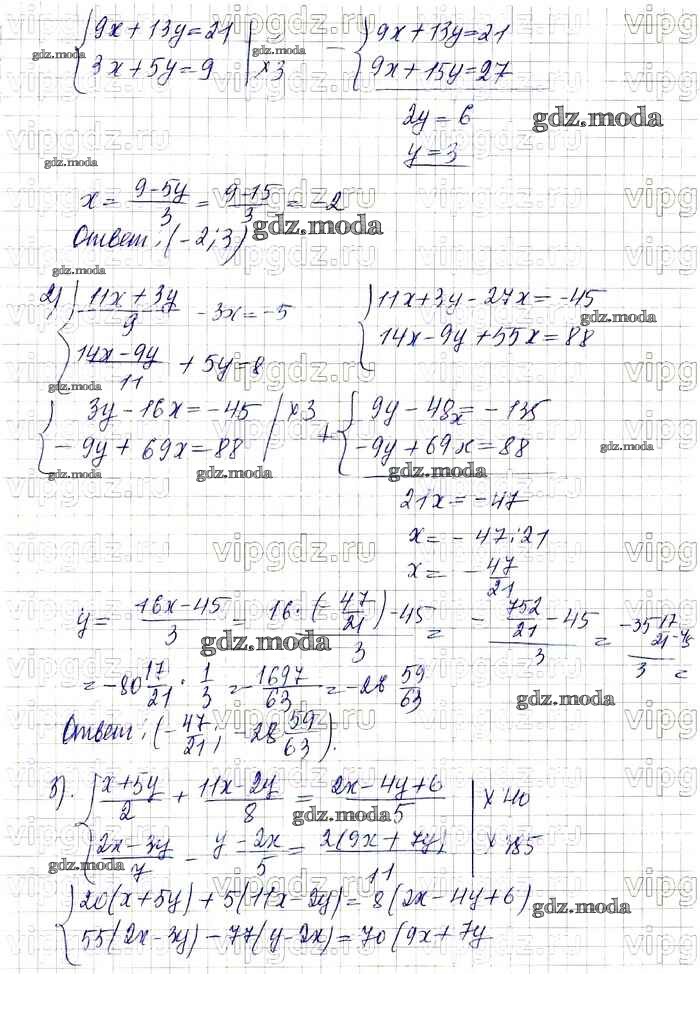 {9x + 13y = 21 {9x + 13y = 21
{3x + 5y = 9 | ×3 − {9x + 15y = 27
2y = 6
y = 3
x = (9-5y)/3 = (9-15)/3 = -2
Ответ: (-2; 3)
2) {(11x + 3y)/9 - 3x = -5 {11x + 3y - 27x = -45
{(14x - 9y)/11 + 5y = 8 {14x - 9y + 55x = 88
{3y - 16x = -45 | ×3 + {9y - 48x = -135
{-9y + 69x = 88 {-9y + 69x = 88
21x = -47
x = -47:21
x = -47/21
y = (16x - 45)/3 = (16·(-47/21) - 45)/3 = (-752/21 - 45)/3 = (-35 17/21 - 45)/3 =
= -80 17/21 · 1/3 = -1697/63 = -28 59/63
Ответ: (-47/21; -28 59/63).
3). {(x+5y)/2 + (11x-2y)/8 = (2x-4y+6)/5 | ×40
{(2x-3y)/7 - (y-2x)/5 = 2(9x+7y)/11 | ×385
{20(x+5y) + 5(11x-2y) = 8(2x-4y+6)
{55(2x-3y) - 77(y-2x) = 70(9x+7y
gdz.moda
vipgdz.ru